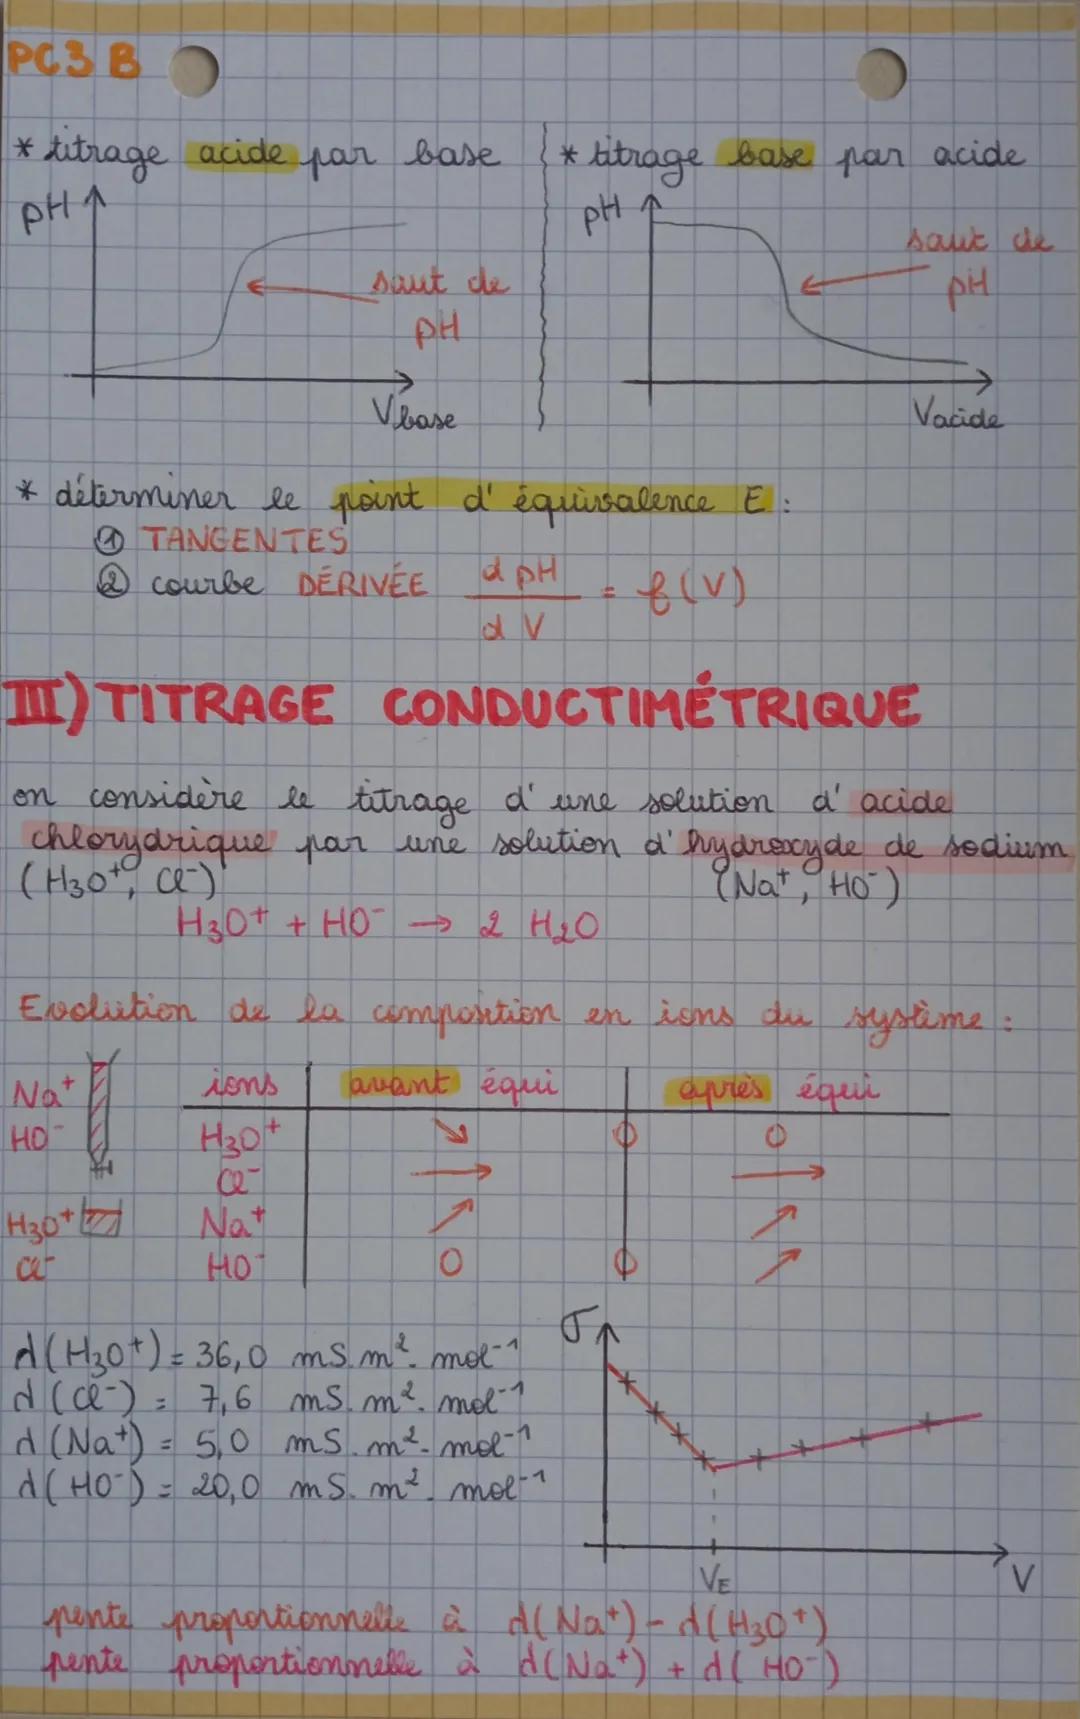 PC3 B
* titrage acide par base
pH
saut de
pH
Vbase
* titrage base par acide
pH
saut de
pH
Vacide
* déterminer le point d'équivalence E :
① TANGENTES
② courbe DÉRIVÉE dpH/dV = f(V)
III) TITRAGE CONDUCTIMÉTRIQUE
on considère le titrage d'une solution d'acide
chlorydrique par une solution d'hydroxyde de sodium
(H3O+, Cl-) (Na+, HO-)
H3O+ + HO- → 2 H2O
Evolution de la composition en ions du système :
Na+
HO-
H3O+
Cl-
ions | avant équi | après équi
H3O+ ↘ 0 0
Cl- → →
Na+ ↗ ↗
HO- 0 0 ↗
λ(H3O+) = 36,0 mS.m².mol-1
λ(Cl-) = 7,6 mS.m².mol-1
λ(Na+) = 5,0 mS.m².mol-1
λ(HO-) = 20,0 mS.m².mol-1
σ
VE
V
pente proportionnelle à λ(Na+) - λ(H3O+)
pente proportionnelle à λ(Na+) + λ(HO-)